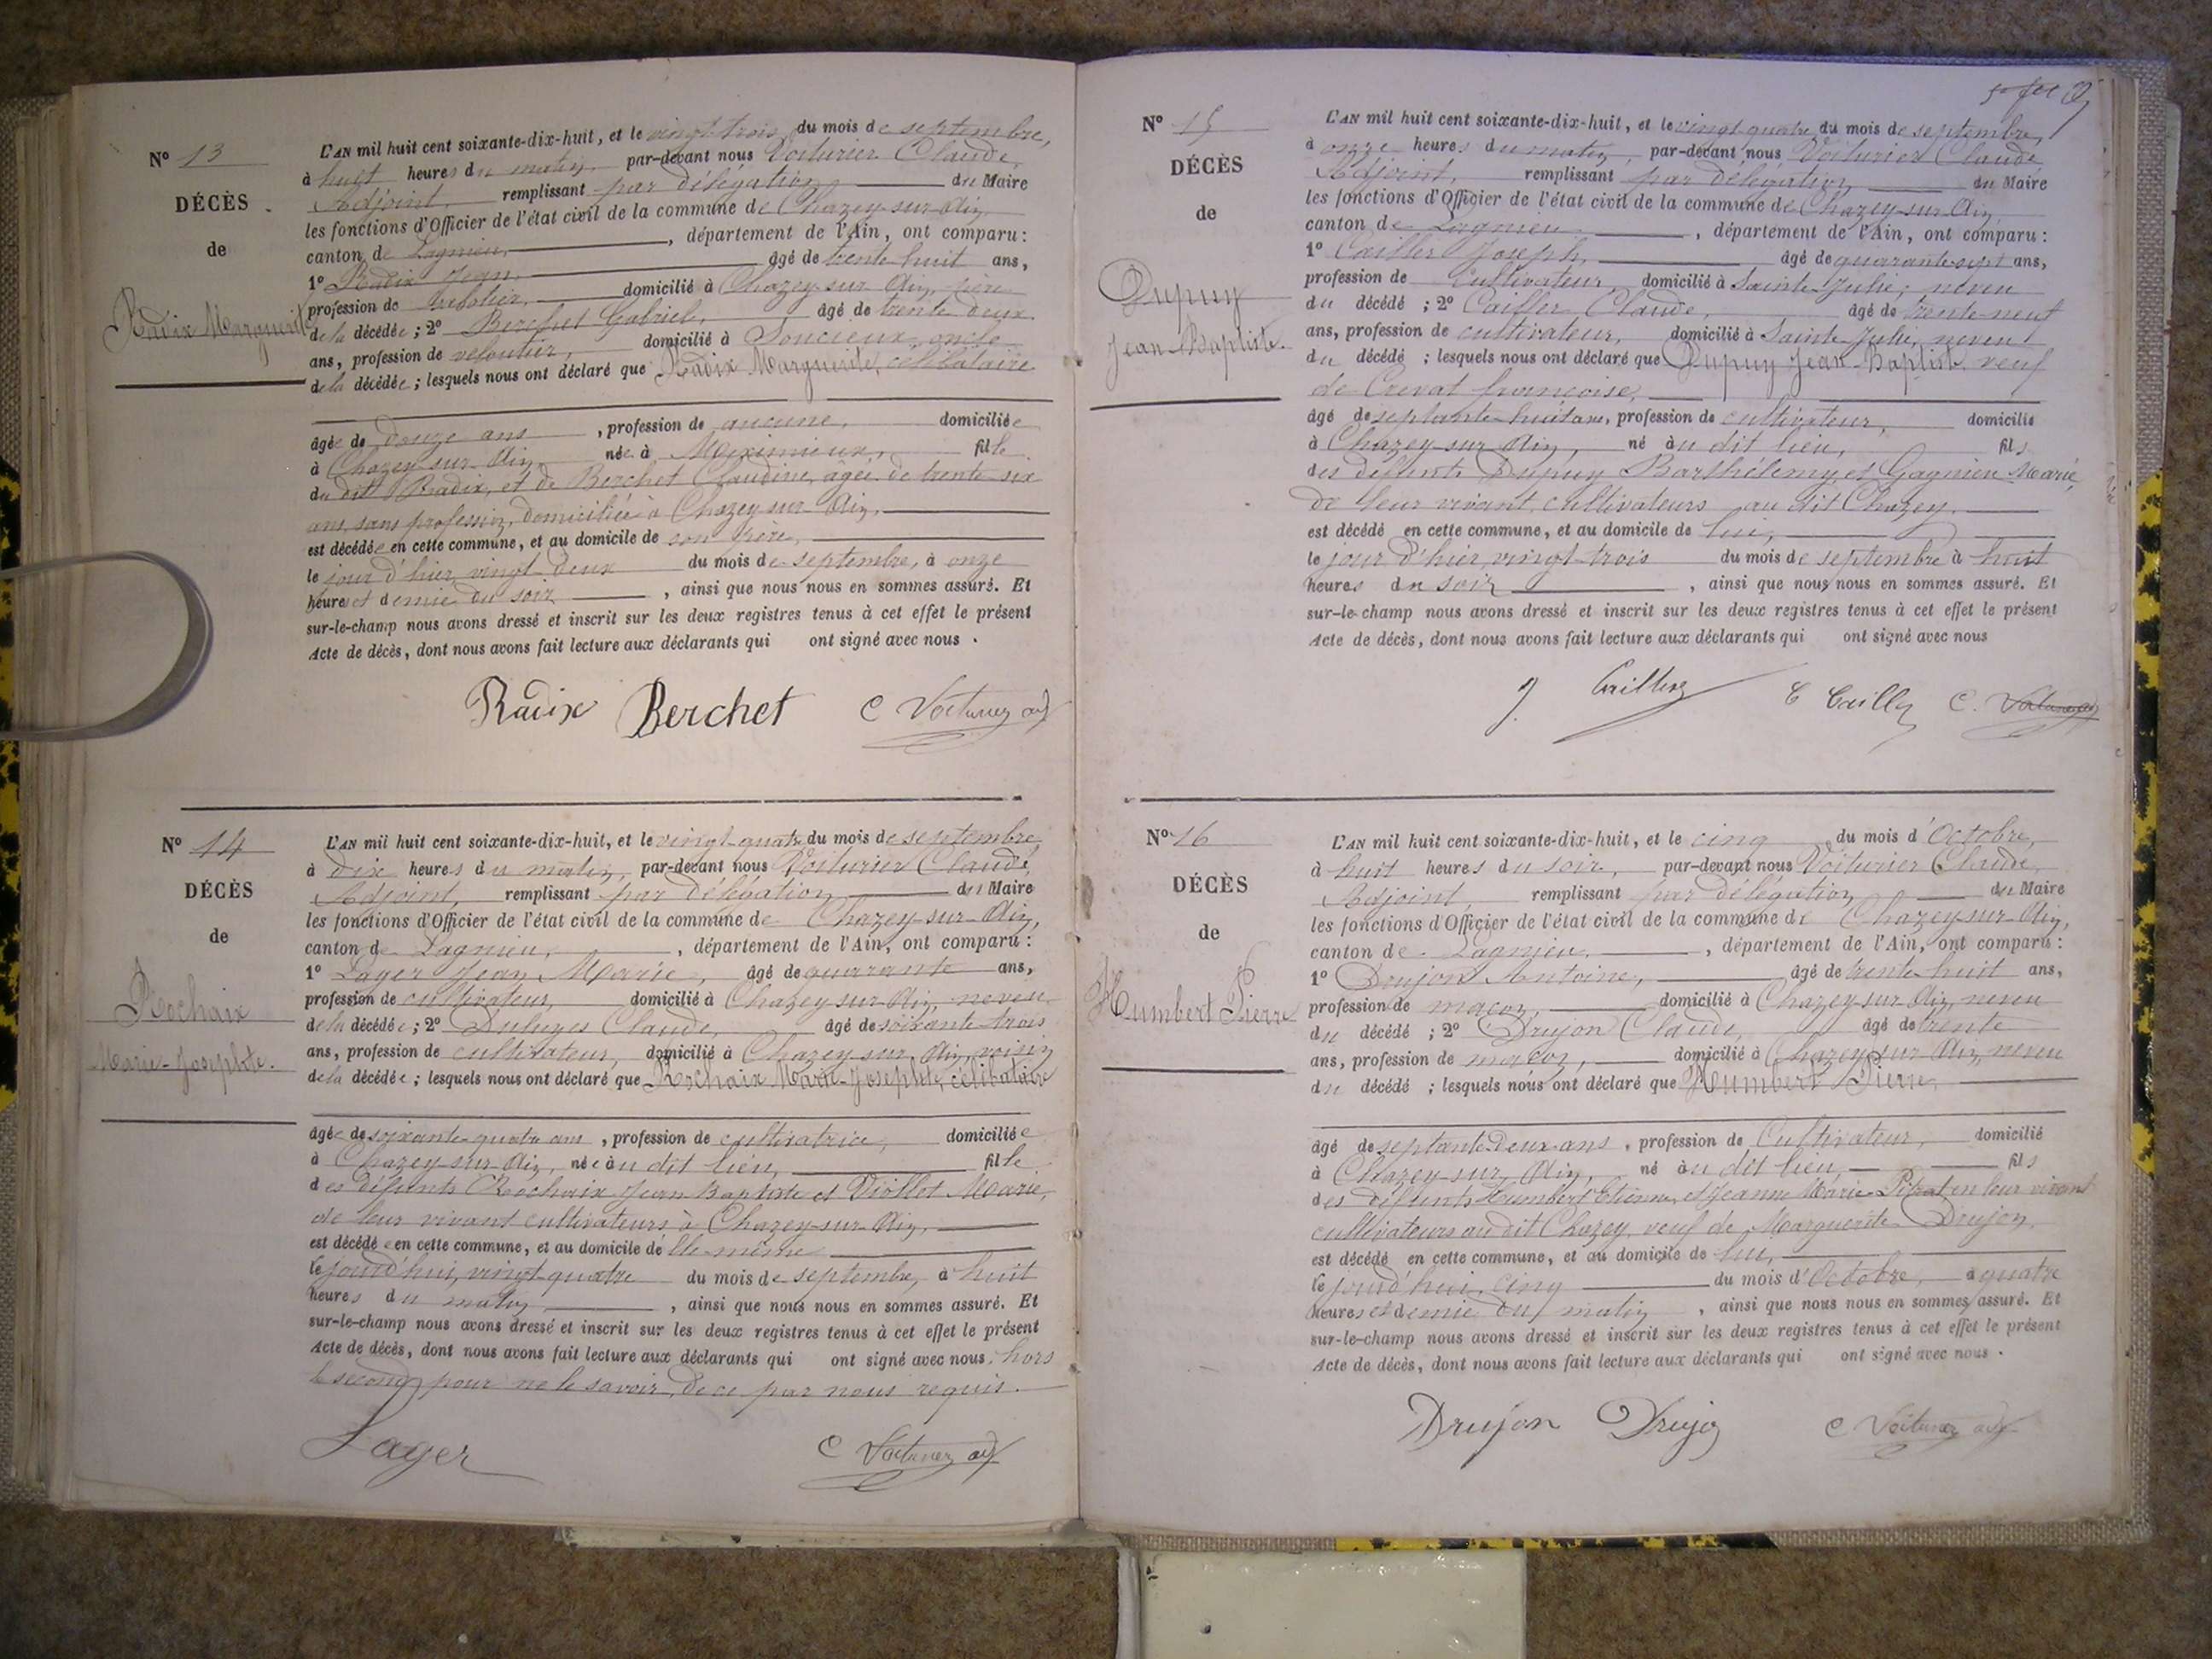 N° 13
DÉCÈS
de
Radix Marguerite
L'AN mil huit cent soixante-dix-huit, et le vingt trois du mois de septembre,
à huit heures du matin, par-devant nous Voiturier Claude,
Adjoint, remplissant par délégation du Maire
les fonctions d'Officier de l'état civil de la commune de Chazey-sur-Ain,
canton de Lagnieu, , département de l'Ain, ont comparu :
1° Radix Jean, âgé de trente-huit ans,
profession de domicilié à Chazey-sur-Ain, père
de la décédée ; 2° Berchet Gabriel, âgé de trente deux
ans, profession de veloutier, domicilié à Soncieux, oncle
de la décédée ; lesquels nous ont déclaré que Radix Marguerite, célibataire
âgée de douze ans , profession de aucune, domiciliée
à Chazey-sur-Ain, née à Meximieux, fille
du dit Radix, et de Berchet Claudine, âgée de trente-six
ans, sans profession, domiciliée à Chazey-sur-Ain,
est décédée en cette commune, et au domicile de son père,
le jour d'hier, vingt deux du mois de septembre, à onze
heures et demie du soir , ainsi que nous nous en sommes assuré. Et
sur-le-champ nous avons dressé et inscrit sur les deux registres tenus à cet effet le présent
Acte de décès, dont nous avons fait lecture aux déclarants qui ont signé avec nous .
Radix Berchet C Voiturier adj
N° 14
DÉCÈS
de
Rochaix
Marie-Josephte.
L'AN mil huit cent soixante-dix-huit, et le vingt-quatre du mois de septembre,
à dix heures du matin, par-devant nous Voiturier Claude,
Adjoint, remplissant par délégation du Maire
les fonctions d'Officier de l'état civil de la commune de Chazey-sur-Ain,
canton de Lagnieu, , département de l'Ain, ont comparu :
1° Layer Jean Marie, âgé de quarante ans,
profession de cultivateur, domicilié à Chazey-sur-Ain, neveu
de la décédée ; 2° Claude, âgé de soixante-trois
ans, profession de cultivateur, domicilié à Chazey-sur-Ain, voisin
de la décédée ; lesquels nous ont déclaré que Rochaix Marie-Josephte, célibataire
âgée de soixante-quatre ans , profession de cultivatrice, domiciliée
à Chazey-sur-Ain, née au dit lieu, fille
des défunts Rochaix Jean Baptiste et Viollet Marie,
de leur vivant cultivateurs à Chazey-sur-Ain,
est décédée en cette commune, et au domicile de Elle-même
le jourd'hui, vingt-quatre du mois de septembre, à huit
heures du matin , ainsi que nous nous en sommes assuré. Et
sur-le-champ nous avons dressé et inscrit sur les deux registres tenus à cet effet le présent
Acte de décès, dont nous avons fait lecture aux déclarants qui ont signé avec nous, hors
le second pour ne le savoir, de ce par nous requis.
Layer C Voiturier adj
N° 15
DÉCÈS
de
Dupuy
Jean-Baptiste.
L'AN mil huit cent soixante-dix-huit, et le vingt quatre du mois de septembre,
à onze heures du matin, par-devant nous Voiturier Claude
Adjoint, remplissant par délégation du Maire
les fonctions d'Officier de l'état civil de la commune de Chazey-sur-Ain,
canton de Lagnieu , département de l'Ain, ont comparu :
1° Cailler Joseph, âgé de quarante-sept ans,
profession de Cultivateur, domicilié à Sainte-Julie, neveu
du décédé ; 2° Cailler Claude, âgé de trente-neuf
ans, profession de cultivateur, domicilié à Sainte-Julie, neveu
du décédé ; lesquels nous ont déclaré que Dupuy Jean-Baptiste veuf
de Crevat françoise,
âgé de septante-huit ans, profession de cultivateur, domicilié
à Chazey-sur-Ain, né au dit lieu, fils
des défunts Dupuy Barthélemy et Gagnieu Marie,
de leur vivant, cultivateurs au dit Chazey.
est décédé en cette commune, et au domicile de lui,
le jour d'hier, vingt-trois du mois de septembre à huit
heures du soir , ainsi que nous nous en sommes assuré. Et
sur-le-champ nous avons dressé et inscrit sur les deux registres tenus à cet effet le présent
Acte de décès, dont nous avons fait lecture aux déclarants qui ont signé avec nous
J. Cailler C Cailler C. Voiturier
N° 16
DÉCÈS
de
Humbert Pierre
L'AN mil huit cent soixante-dix-huit, et le cinq du mois d'Octobre,
à huit heures du soir, par-devant nous Voiturier Claude,
Adjoint, remplissant par délégation du Maire
les fonctions d'Officier de l'état civil de la commune de Chazey-sur-Ain,
canton de Lagnieu, , département de l'Ain, ont comparu :
1° Drujon Antoine, âgé de trente-huit ans,
profession de maçon, domicilié à Chazey-sur-Ain, neveu
du décédé ; 2° Drujon Claude, âgé de trente
ans, profession de maçon, domicilié à Chazey-sur-Ain, neveu
du décédé ; lesquels nous ont déclaré que Humbert Pierre,
âgé de septante-deux ans , profession de Cultivateur, domicilié
à Chazey-sur-Ain, né au dit lieu, fils
des défunts Humbert Etienne, et Jeanne Marie en leur vivant
cultivateurs au dit Chazey, veuf de Marguerite Drujon,
est décédé en cette commune, et au domicile de lui,
le jourd'hui, cinq du mois d'Octobre, à quatre
heures et demie du matin , ainsi que nous nous en sommes assuré. Et
sur-le-champ nous avons dressé et inscrit sur les deux registres tenus à cet effet le présent
Acte de décès, dont nous avons fait lecture aux déclarants qui ont signé avec nous .
Drujon Drujon C Voiturier adj